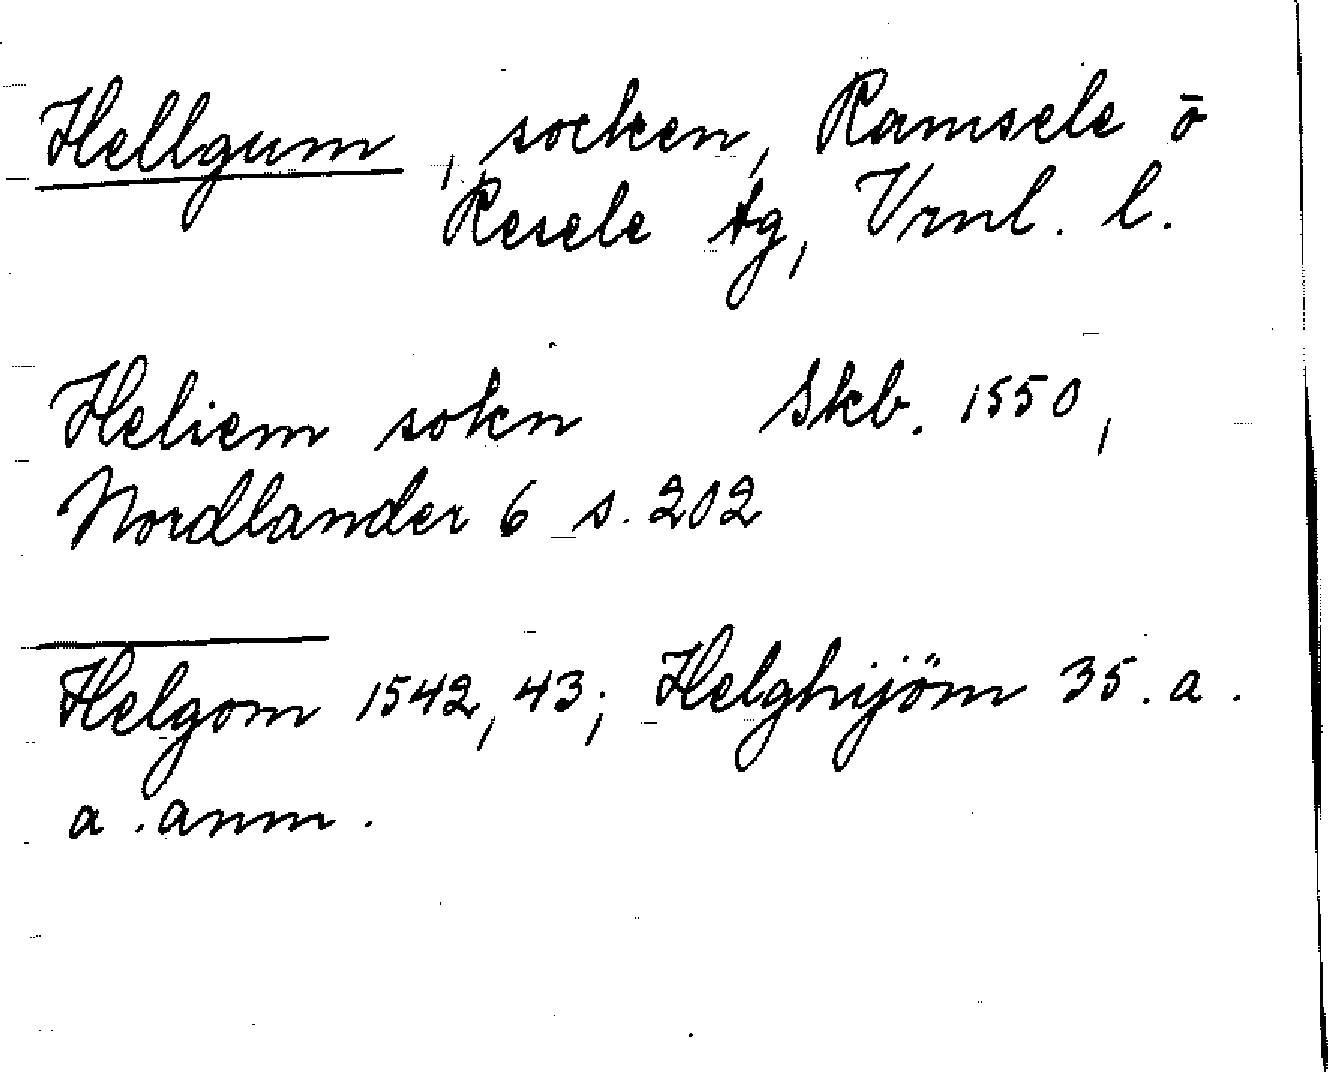 Hellgum, socken, Ramsele ō
Resele tg, Vrnl. l.
Heliem sokn Skb. 1550,
Nordlander 6 s. 202
Helgom 1542, 43; Helghijöm 35. a.
a. anm.